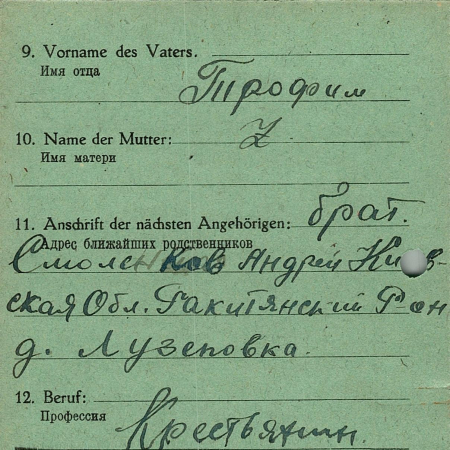 9. Vorname des Vaters.
Имя отца
Трофим
10. Name der Mutter:
Имя матери
Z
11. Anschrift der nächsten Angehörigen: брат.
Адрес ближайших родственников
Смоленков Андрей Киев-
ская Обл. Ракитянский Р-он
д. Лузеповка.
12. Beruf:
Профессия
Крестьянин.